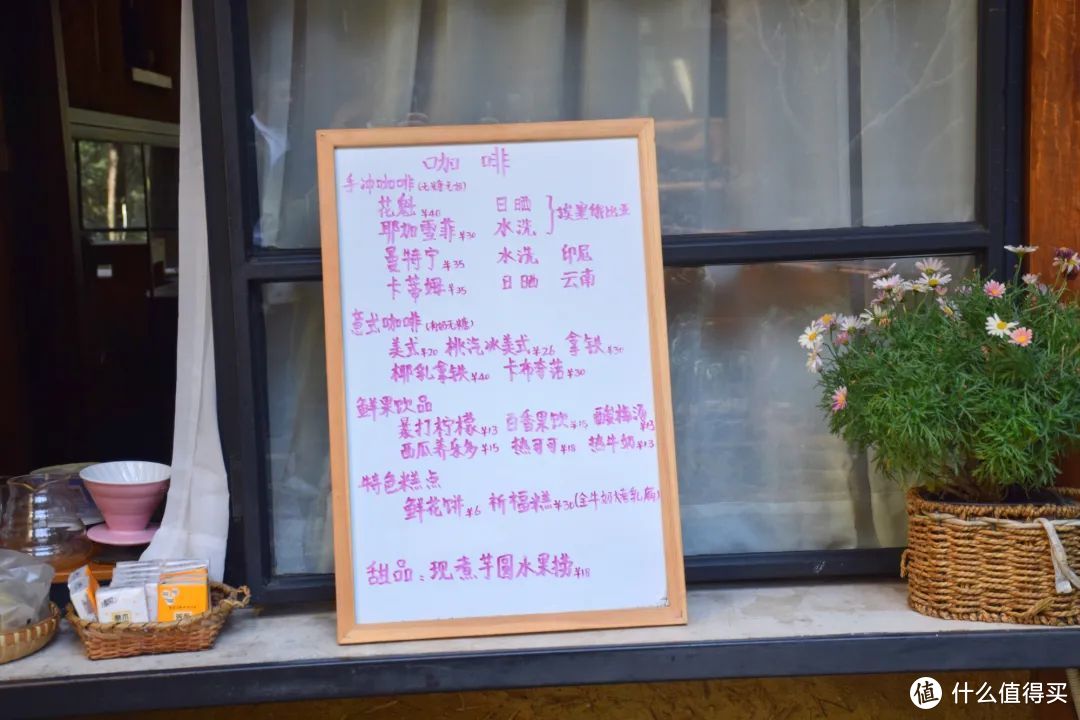 咖 啡
手冲咖啡(无糖无奶)
花魁¥40 日晒 }埃塞俄比亚
耶加雪菲¥30 水洗
曼特宁¥35 水洗 印尼
卡蒂姆¥35 日晒 云南
意式咖啡(有奶无糖)
美式¥20 桃汽冰美式¥26 拿铁¥30
椰乳拿铁¥40 卡布奇诺¥30
鲜果饮品
暴打柠檬¥13 百香果饮¥15 酸梅汤¥13
西瓜养乐多¥15 热可可¥18 热牛奶¥13
特色糕点
鲜花饼¥6 祈福糕¥30(全牛奶烤乳扇)
甜品:现煮芋圆水果捞¥18
值 什么值得买